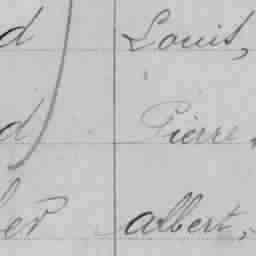 d Louis,
d Pierre,
ler Albert,